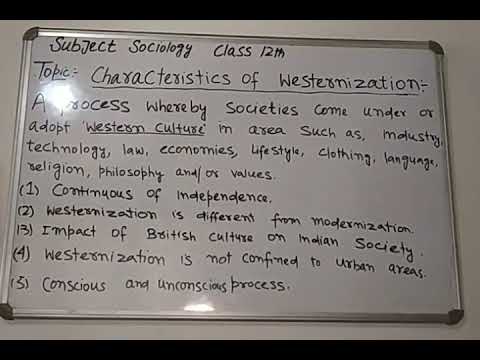 Subject Sociology Class 12th
Topic:- Characteristics of Westernization:-
A process whereby societies come under or
adopt 'Western Culture' in area such as, industry,
technology, law, economies, lifestyle, clothing, language,
religion, philosophy and/or values.
(1) Continuous of independence.
(2) Westernization is different from modernization.
(3) Impact of British culture on Indian Society.
(4) Westernization is not confined to urban areas.
(5) Conscious and unconscious process.